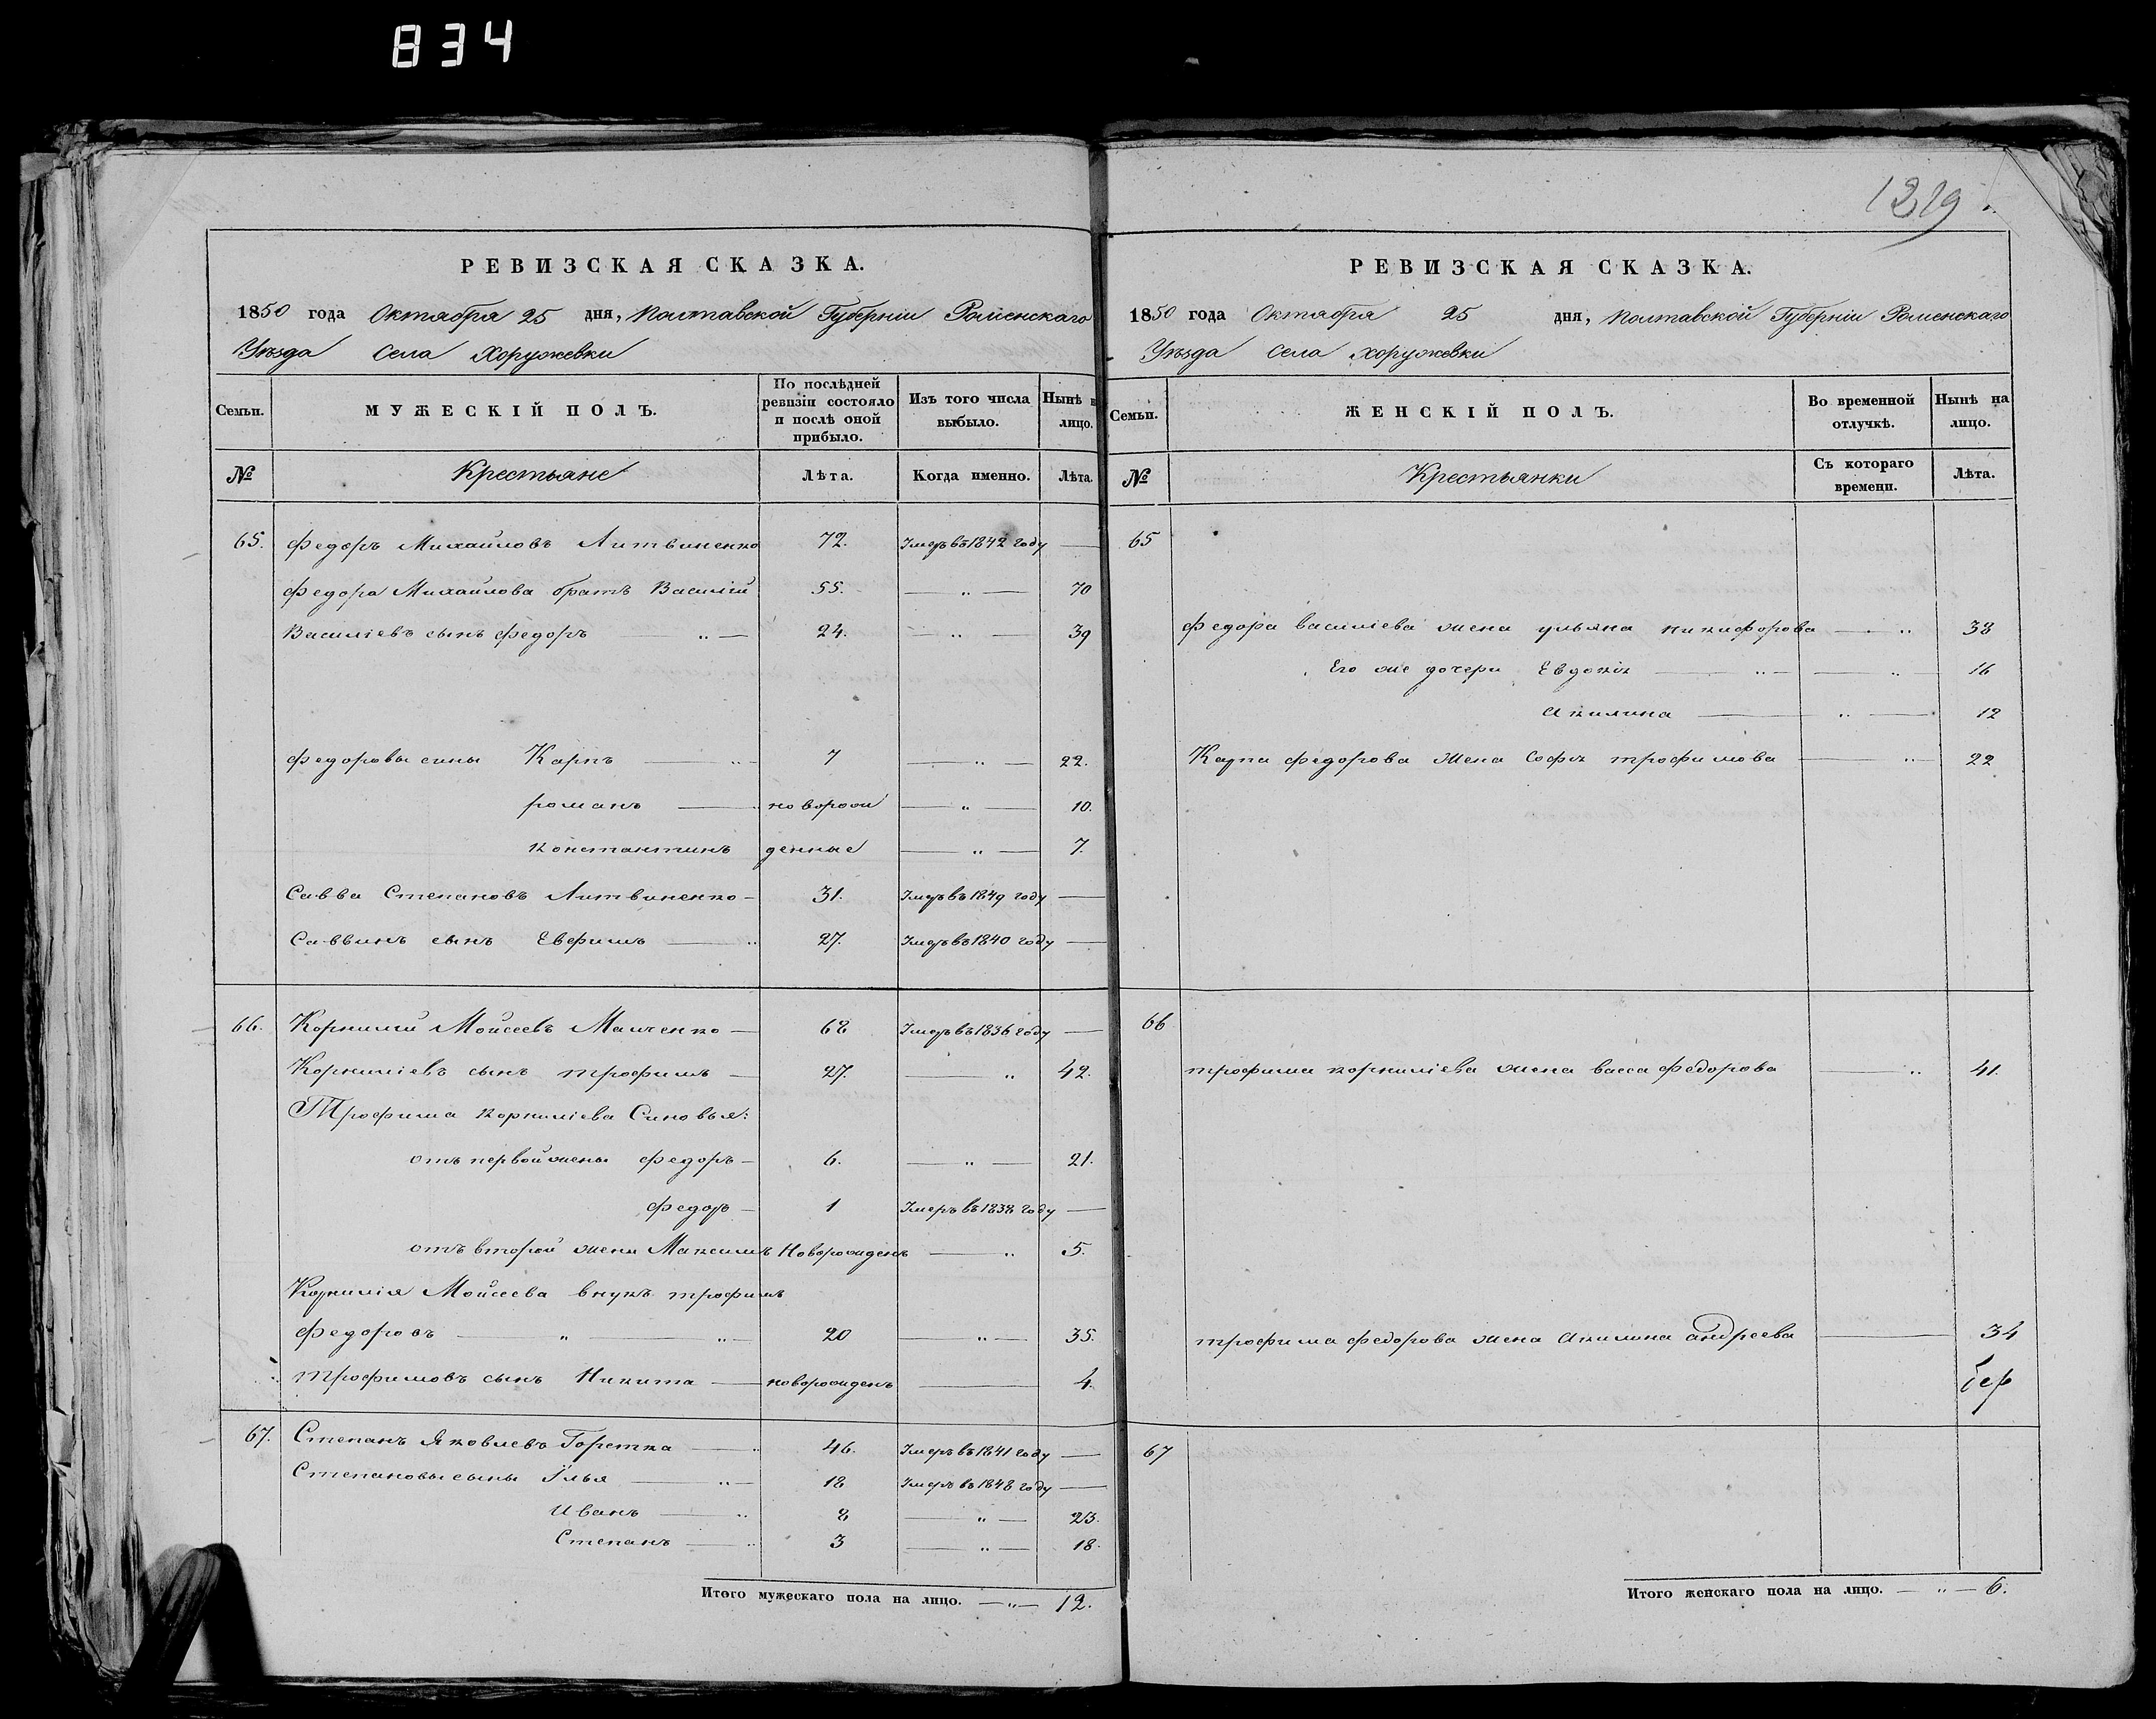 834
1319
РЕВИЗСКАЯ СКАЗКА.
1850 года Октября 25 дня, Полтавской Губерніи Роменскаго
Уѣзда Села Хоружевки
Семьи. МУЖЕСКІЙ ПОЛЪ. По послѣдней ревизіи состояло и послѣ оной прибыло. Изъ того числа выбыло. Нынѣ н лицо.
№ Крестьяне Лѣта. Когда именно. Лѣта.
65. Федоръ Михайловъ Литвиненко 72. Умеръ въ 1842 году —
Федора Михайлова братъ Василій 55. — „ — 70
Василіевъ сынъ Федоръ „ — 24. — „ — 39
Федоровы сины Карпъ — „ 7 — „ — 22.
романъ — новорож — „ — 10.
константинъ денные — „ — 7.
Савва Степановъ Литвиненко — 31. Умеръ въ 1849 году —
Саввинъ сынъ Евфимъ — „ 27. Умеръ въ 1840 году —
66. Корнилій Мойсеевъ Малченко — 68 Умеръ въ 1836 году —
Корниліевъ сынъ трофимъ — 27. — „ 42.
Трофима корниліева Синовья:
отъ первой жены федоръ — 6. — „ — 21.
федоръ — 1 Умеръ въ 1838 году —
отъ второй жени Максимъ Новорожденъ — „ 5.
Корнилія Мойсеева внукъ трофимъ
федоровъ — „ — „ — 20 — „ — 35.
трофимовъ сынъ Никита — новорожденъ — 4.
67. Степанъ Яковлевъ Горетка — „ 46. Умеръ въ 1841 году —
Степановы сыны Илья — „ — 18 Умеръ въ 1848 году —
Иванъ — „ 8 — „ — 23.
Степанъ — „ 3 — „ — 18.
Итого мужескаго пола на лицо. — „ — 12.
РЕВИЗСКАЯ СКАЗКА.
1850 года Октября 25 дня, Полтавской Губерніи Роменскаго
Уѣзда Села Хоружевки
Семьи. ЖЕНСКІЙ ПОЛЪ. Во временной отлучкѣ. Нынѣ на лицо.
№ Крестьянки Съ котораго времени. Лѣта.
65
Федора василіева жена ульяна никифорова — „ 38
Его же дочери Евдокія — „ — — „ — 16
Акилина — „ — 12
Карпа федорова жена Софія трофимова — „ — 22
66
трофима корниліева жена васса федорова — „ 41.
трофима федорова жена Акилина андреева — 34
67
Итого женскаго пола на лицо. — „ — 6.